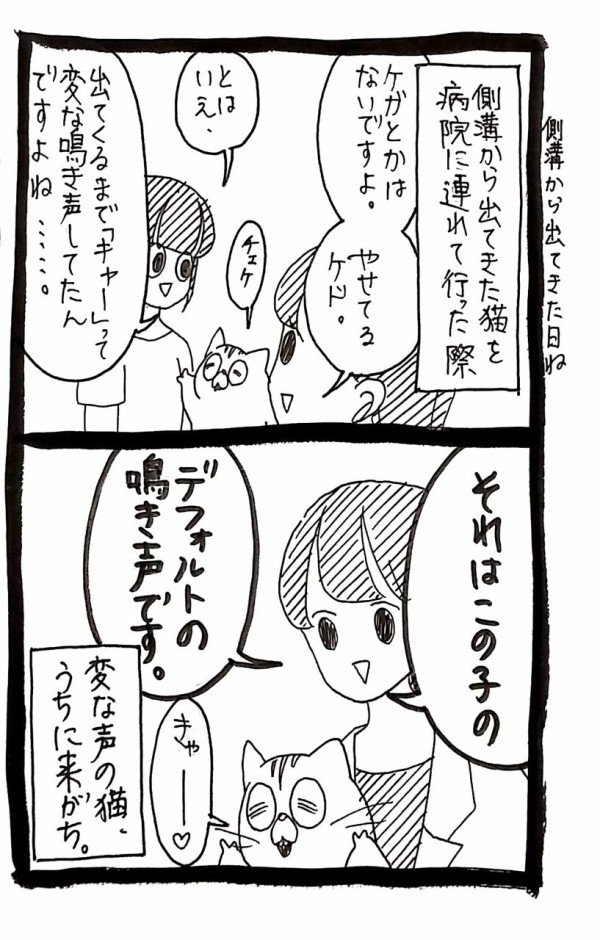 側溝から出てきた日ね
側溝から出てきた猫を
病院に連れて行った際
ケガとかは
ないですよ。
やせてる
ケド。
チェケ
とは
いえ、
出てくるまで「ギャー」って
変な鳴き声してたん
ですよね……。
それはこの子の
デフォルトの
鳴き声です。
きゃー♡
変な声の猫、
うちに来がち。